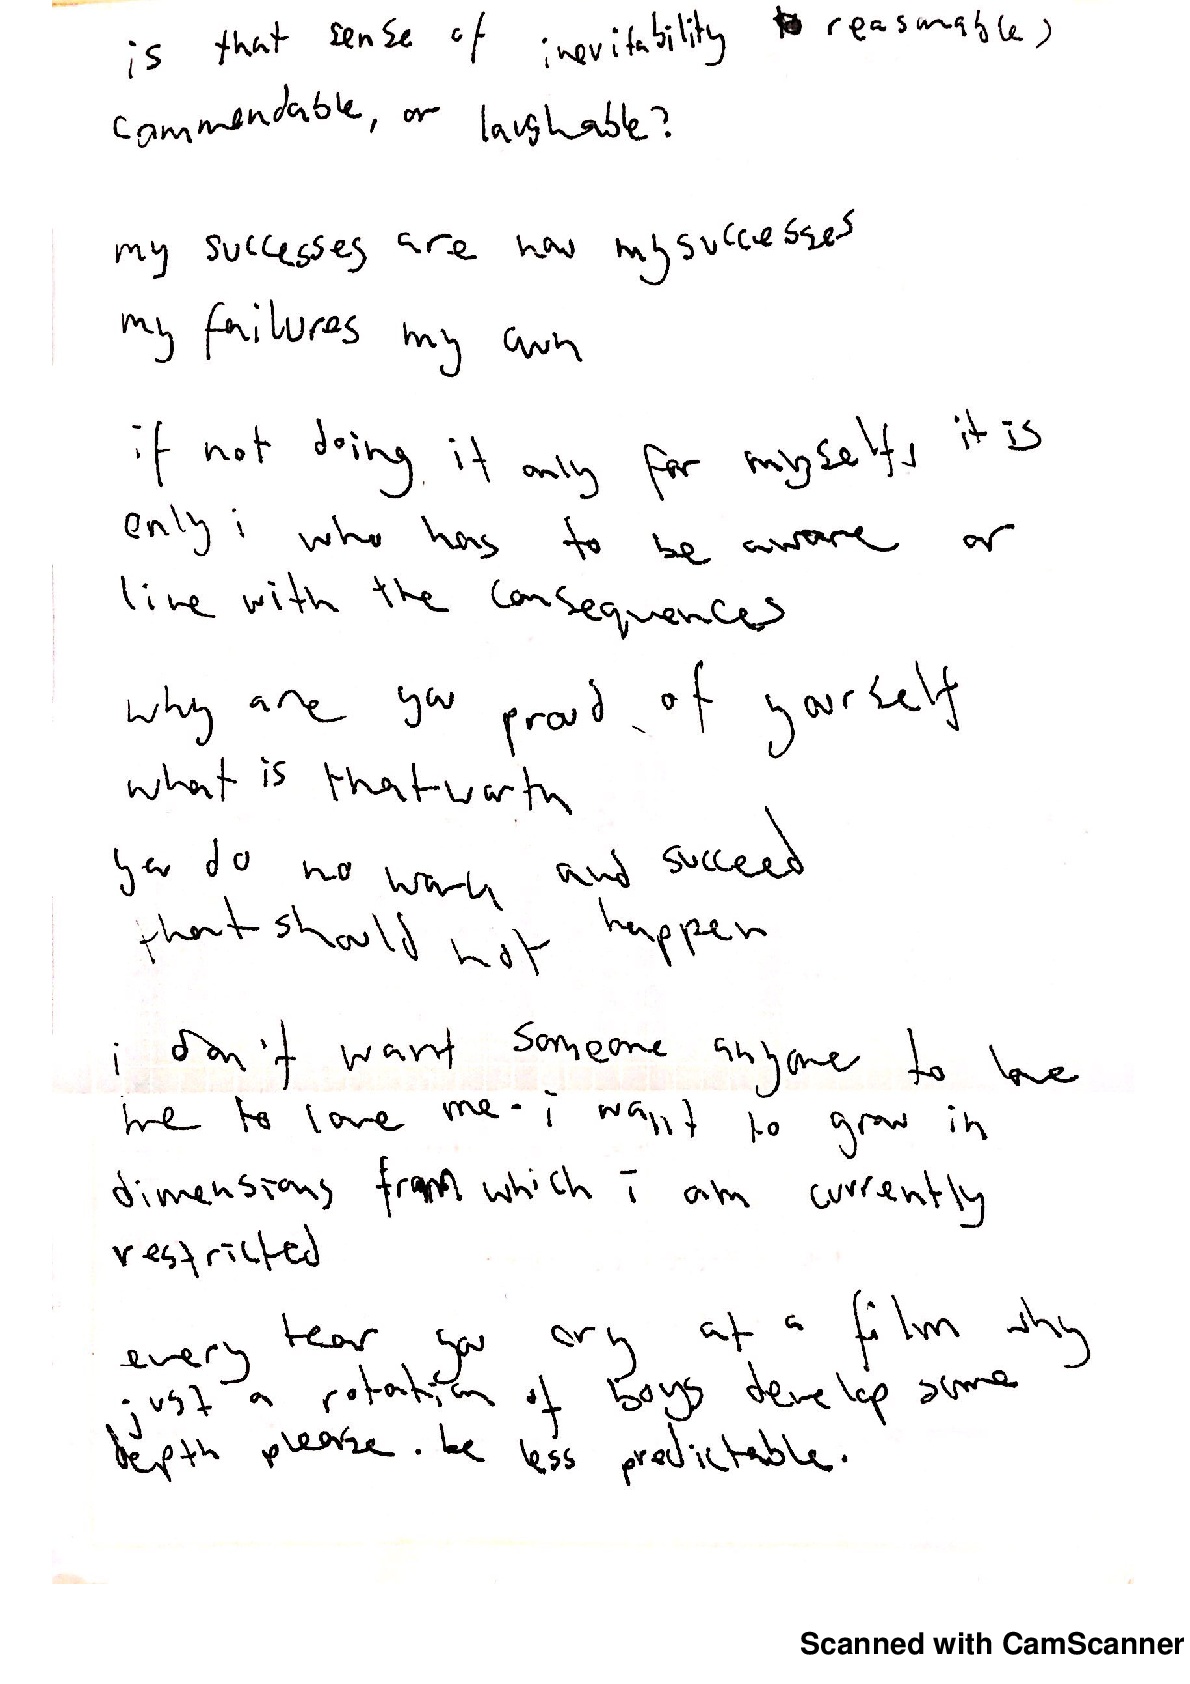 is that sense of inevitability reasonable,
commendable, or laughable?
my successes are now my successes
my failures my own
if not doing it only for myself, it is
only i who has to be aware or
live with the consequences
why are you proud of yourself
what is that worth
you do no work and succeed
that should not happen
i don't want someone anyone to love
me to love me. i want to grow in
dimensions from which i am currently
restricted
every tear you cry at a film why
just a rotation of boys develop some
depth please. be less predictable.
Scanned with CamScanner